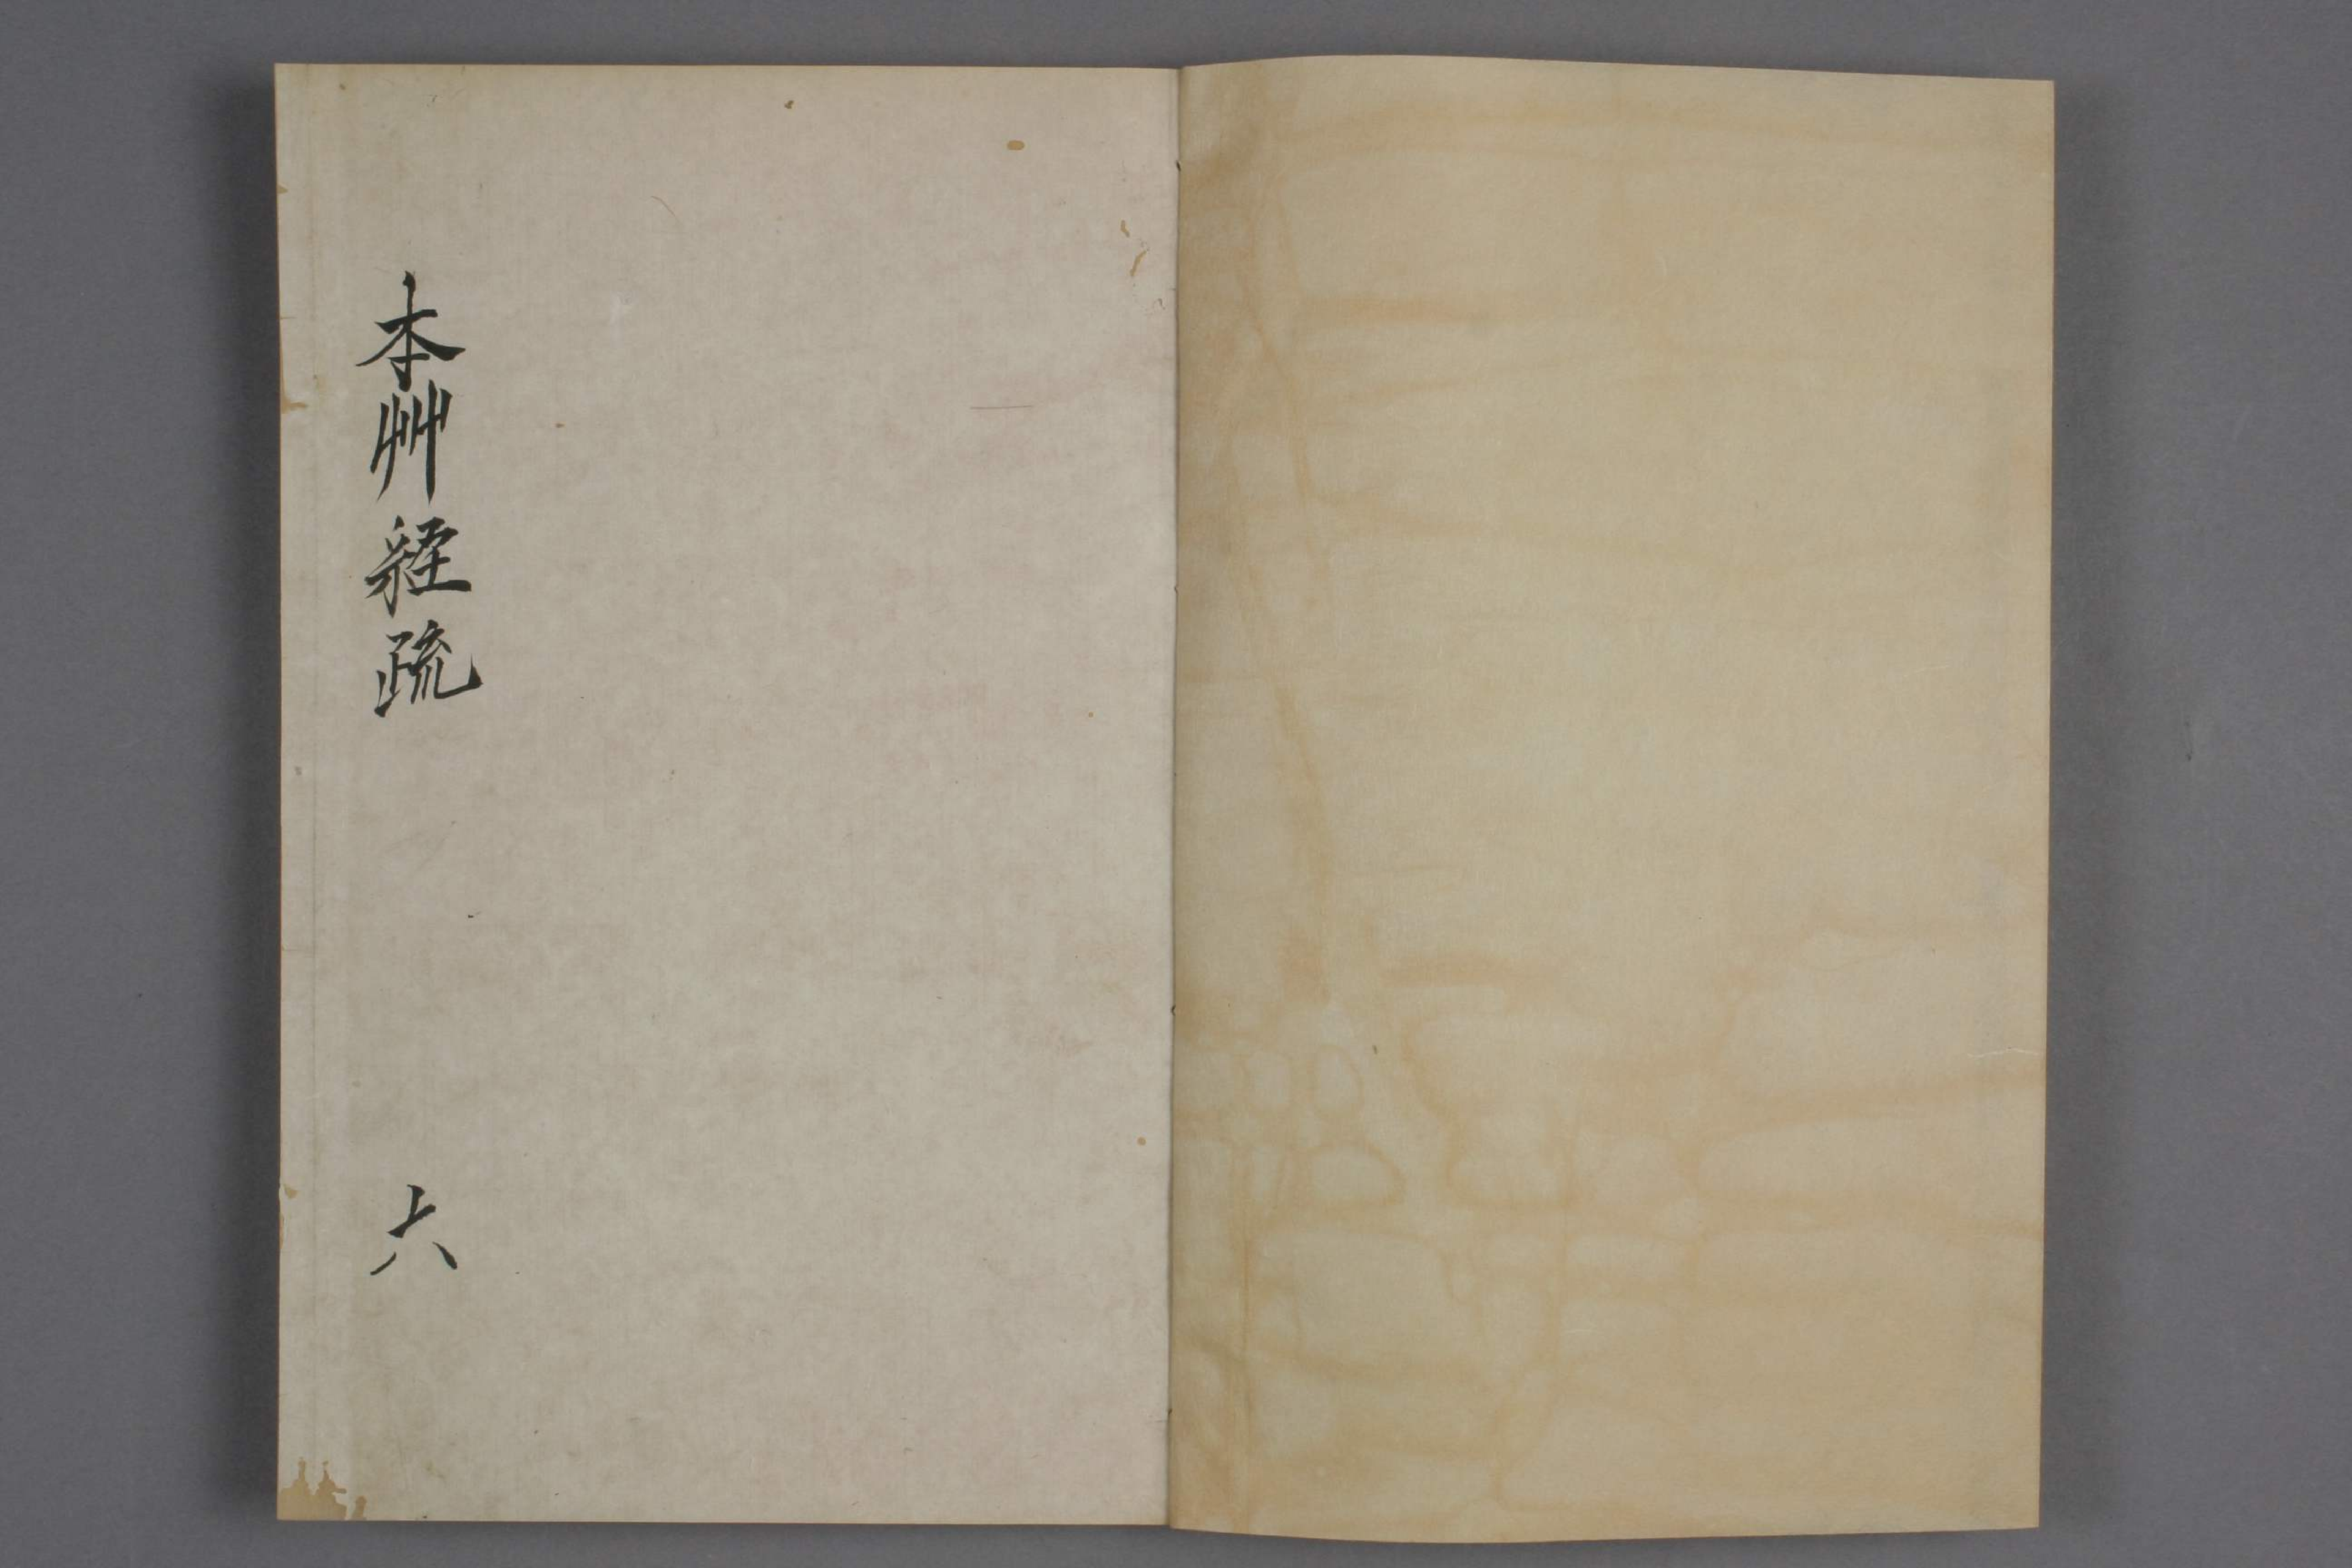 本艸經疏
六